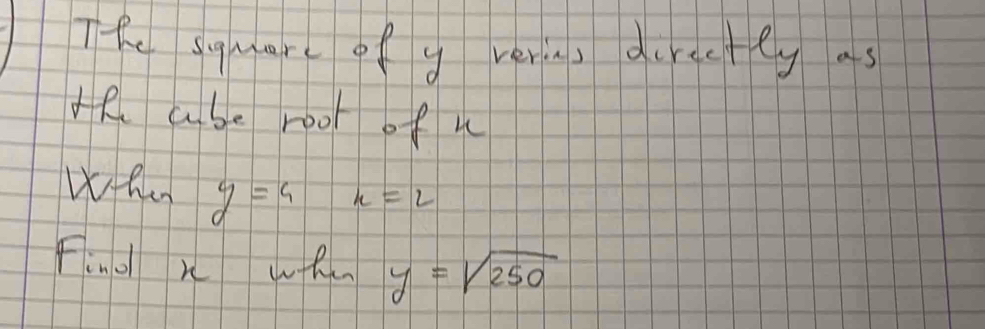 The square of y veries directly as
the cube root of x
When y = 4 x = 2
Find x when y = √250